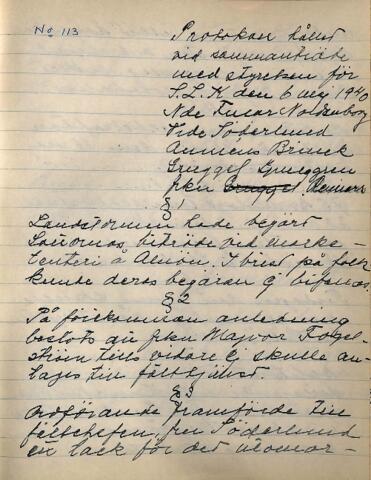 No 113
Protokoll hållet
vid sammanträde
med styrelsen för
S.L.K den 6 maj 1940
Nde Fruar Nordenborg
Vide Söderlund
Brinck
frkn
§ 1
Landstormen hade begärt
Lottornas biträde vid marke-
tenteri å Almön. I brist på folk
kunde deras begäran ej bifallas.
§ 2
På förekommen anledning
beslöts att frkn Majvor Fogel-
ström tills vidare ej skulle an-
tages till fälttjänst.
§ 3
Ordförande framförde till
fältchefen, fru Söderlund
ett tack för det utomor-